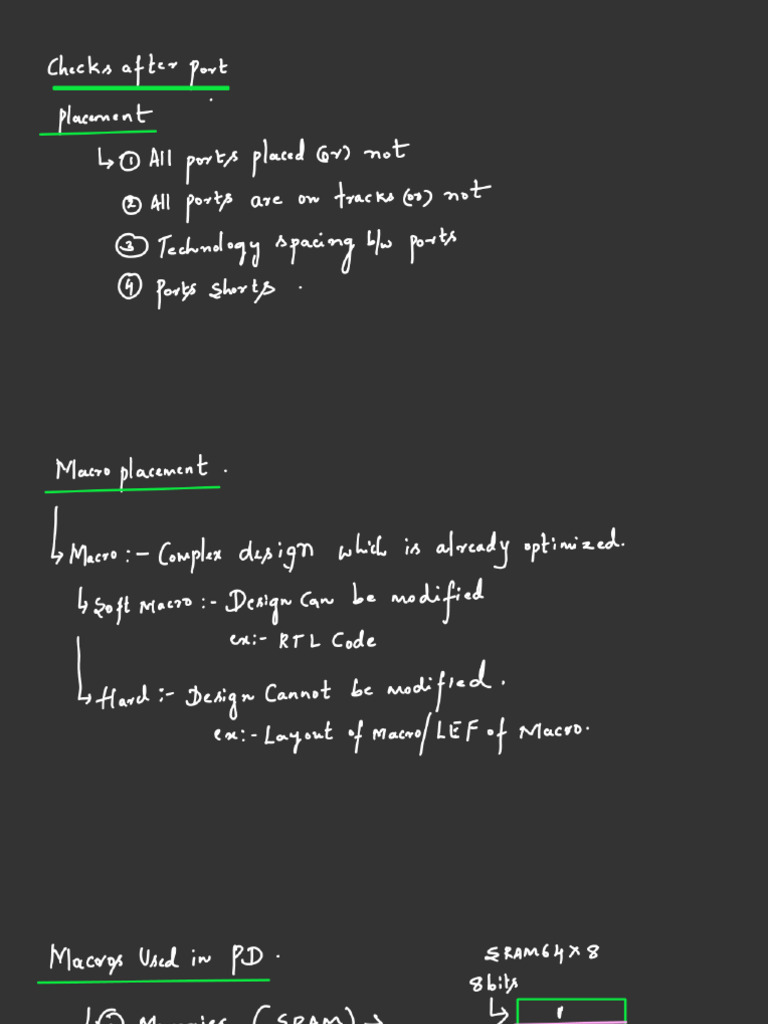 Checks after port
placement
↳ ① All ports placed (or) not
② All ports are on tracks (or) not
③ Technology spacing b/w ports
④ Ports shorts .
Macro placement .
↳ Macro :- Complex design which is already optimized.
↳ Soft Macro :- Design Can be modified
ex:- RTL Code
↳ Hard :- Design Cannot be modified .
ex:- Layout of Macro/LEF of Macro.
Macros Used in PD .
SRAM64×8
8bits
↳ 1
↳ ① Memories (SRAM) →